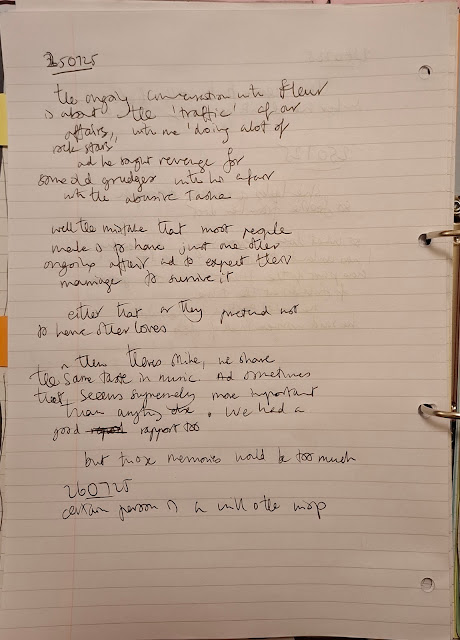 250725
the ongoing conversation with Fleur
is about the 'traffic' of our
affairs, with me 'doing alot of
rock stars
ad he sought revenge for
some old grudges with his affair
with the abusive Tasha
well the mistake that most people
make is to have just one other
ongoing affair ad to expect their
marriage to survive it
either that or they pretend not
to have other loves
n then theres Mike, we share
the same taste in music. Ad sometimes
that seems supremely more important
than anything else. We had a
good rapport too
but those memories would be too much
260725
certain person is a will o the wisp